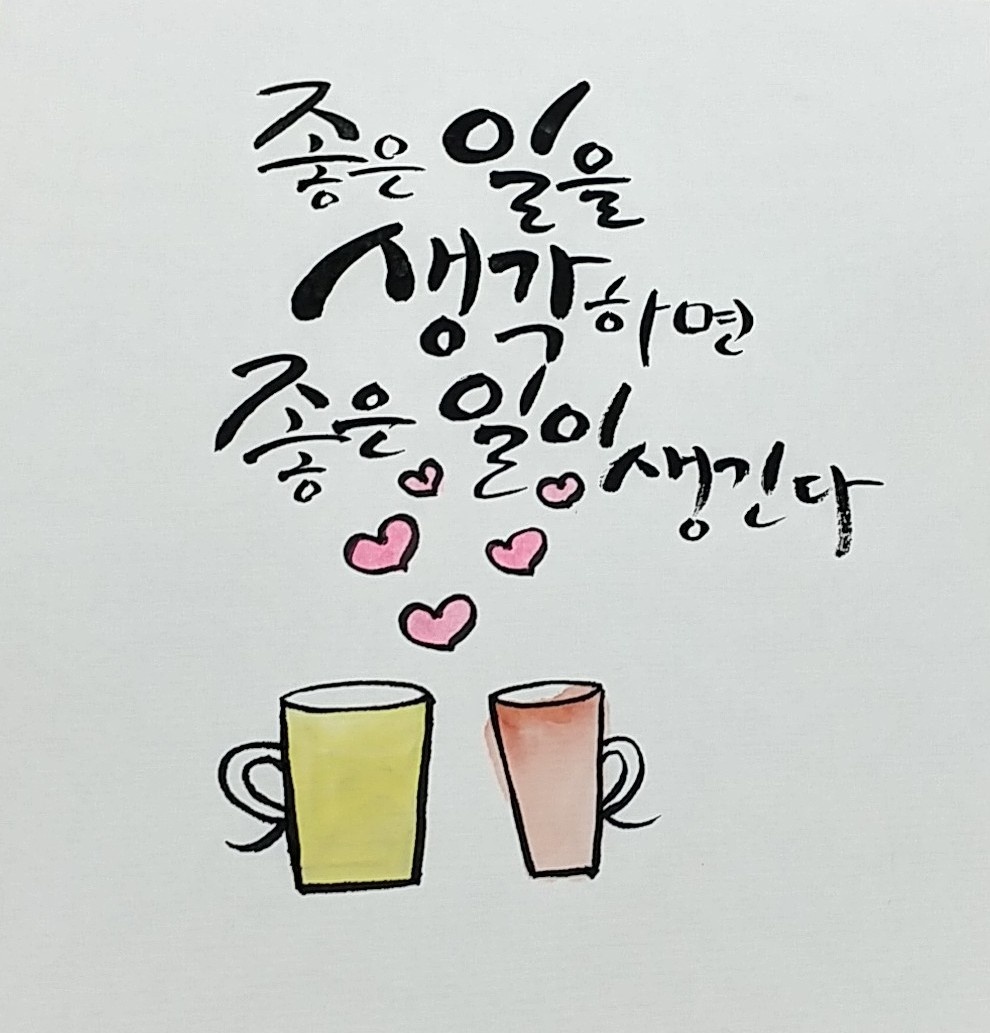 좋은 일을
생각하면
좋은 일이 생긴다